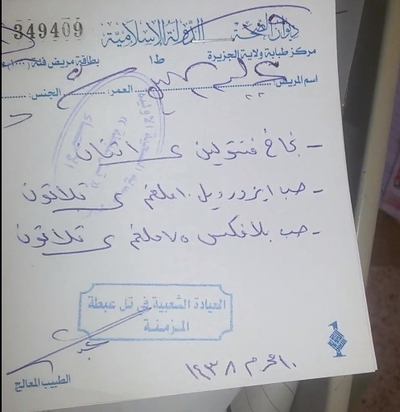 349409
ديوان الصحة
الدولة الإسلامية
مركز طبابة ولاية الجزيرة
ط١
بطاقة مريض فئة
اسم المريض:
العمر:
الجنس:
- بخاخ فنتولين ع اثنان
- حب ايزورديل ١٠ملغم ع ثلاثون
- حب بلافكس ٧٥ملغم ع ثلاثون
العيادة الشعبية في تل عبطة
المزمنة
١٠ محرم ١٤٣٨
الطبيب المعالج